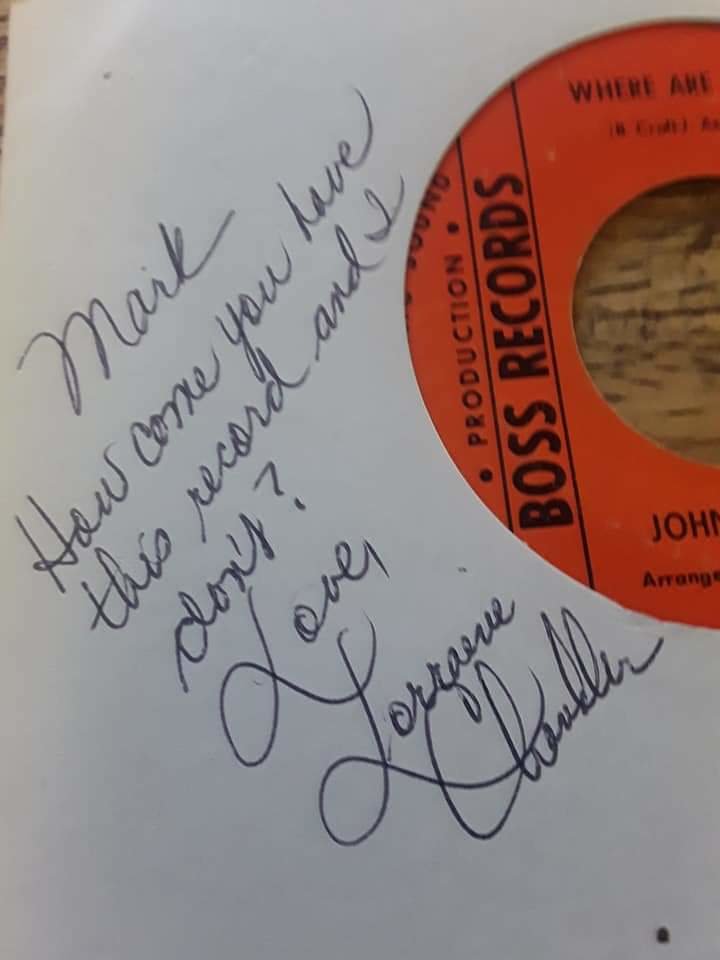 Mark
How come you have
this record and I
don't?
Love,
Lorraine
Chandler
WHERE ARE
SOUND
• PRODUCTION •
BOSS RECORDS
JOHN
Arrange